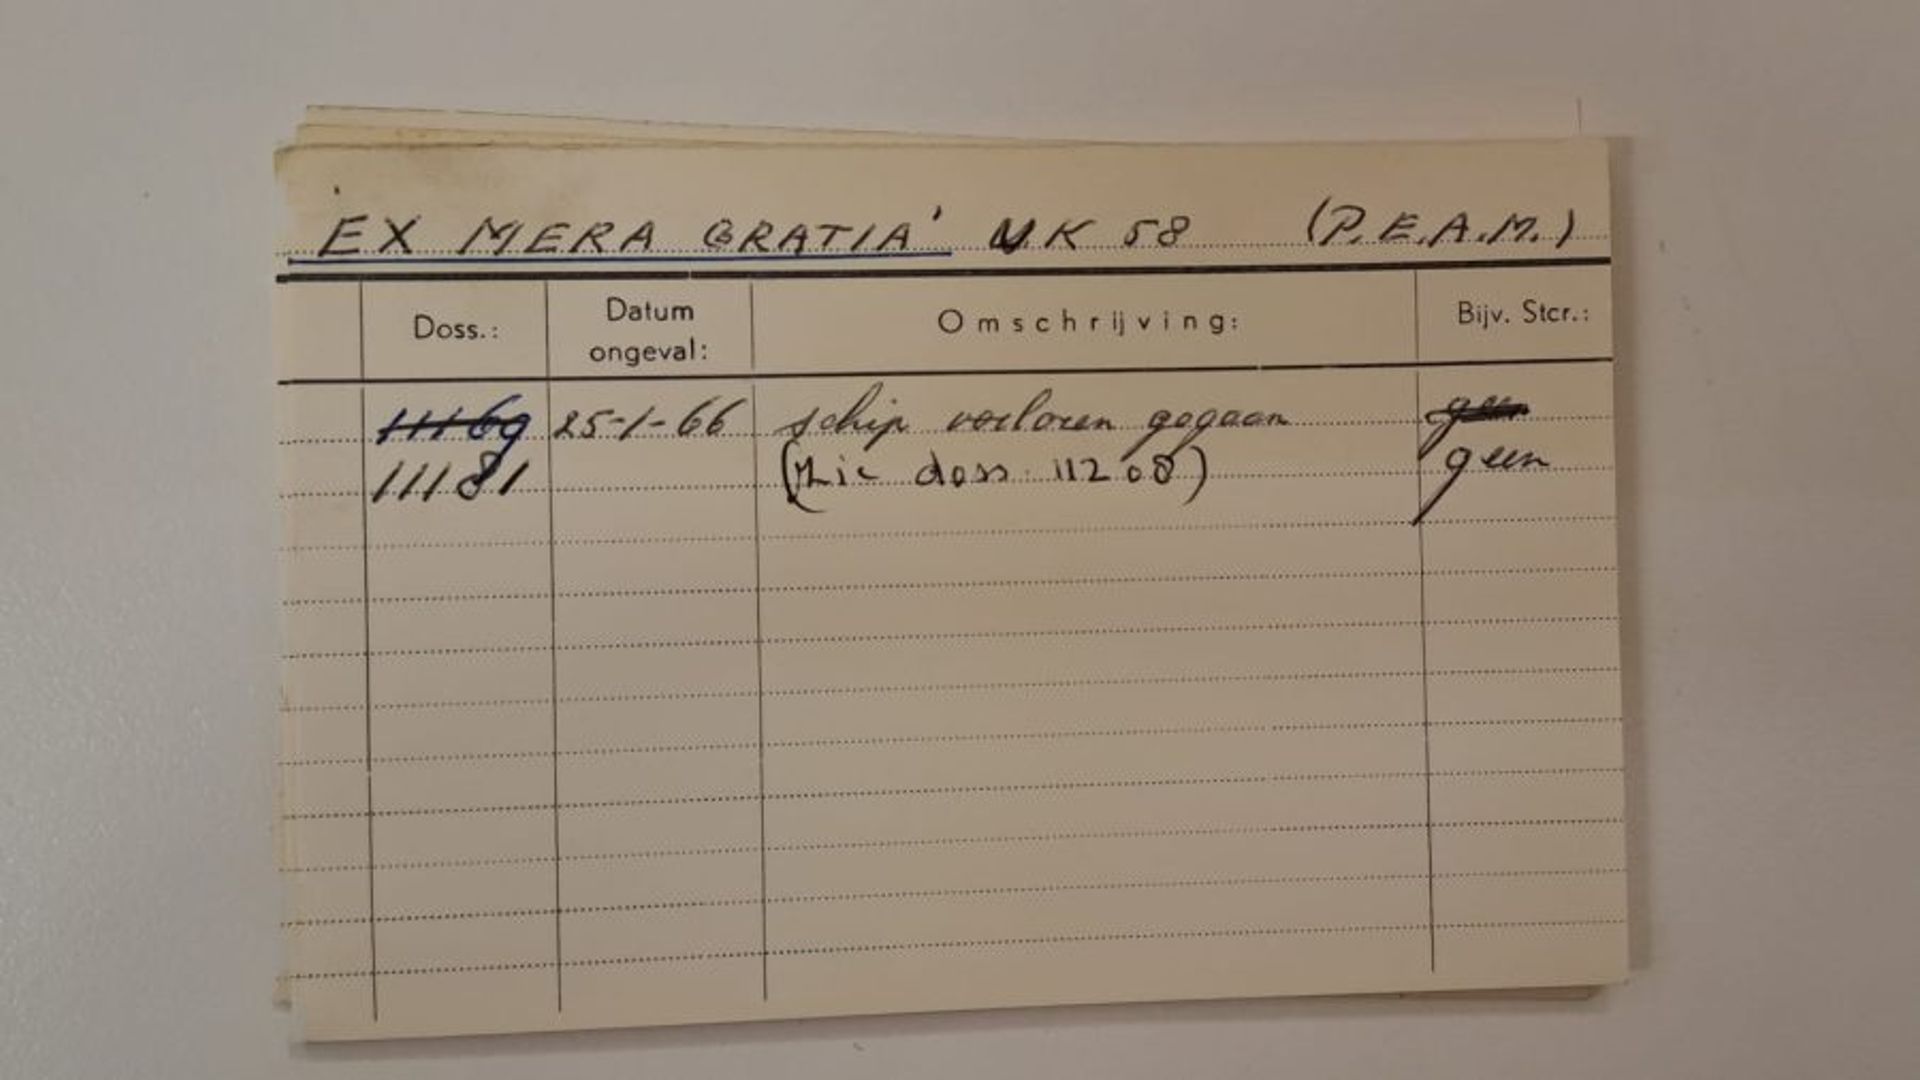 'EX MERA GRATIA' UK 58 (P.E.A.M.)
Doss.: Datum ongeval: Omschrijving: Bijv. Stcr.:
11169 25-1-66 schip verloren gegaan geen
11181 (zie doss. 11208) geen